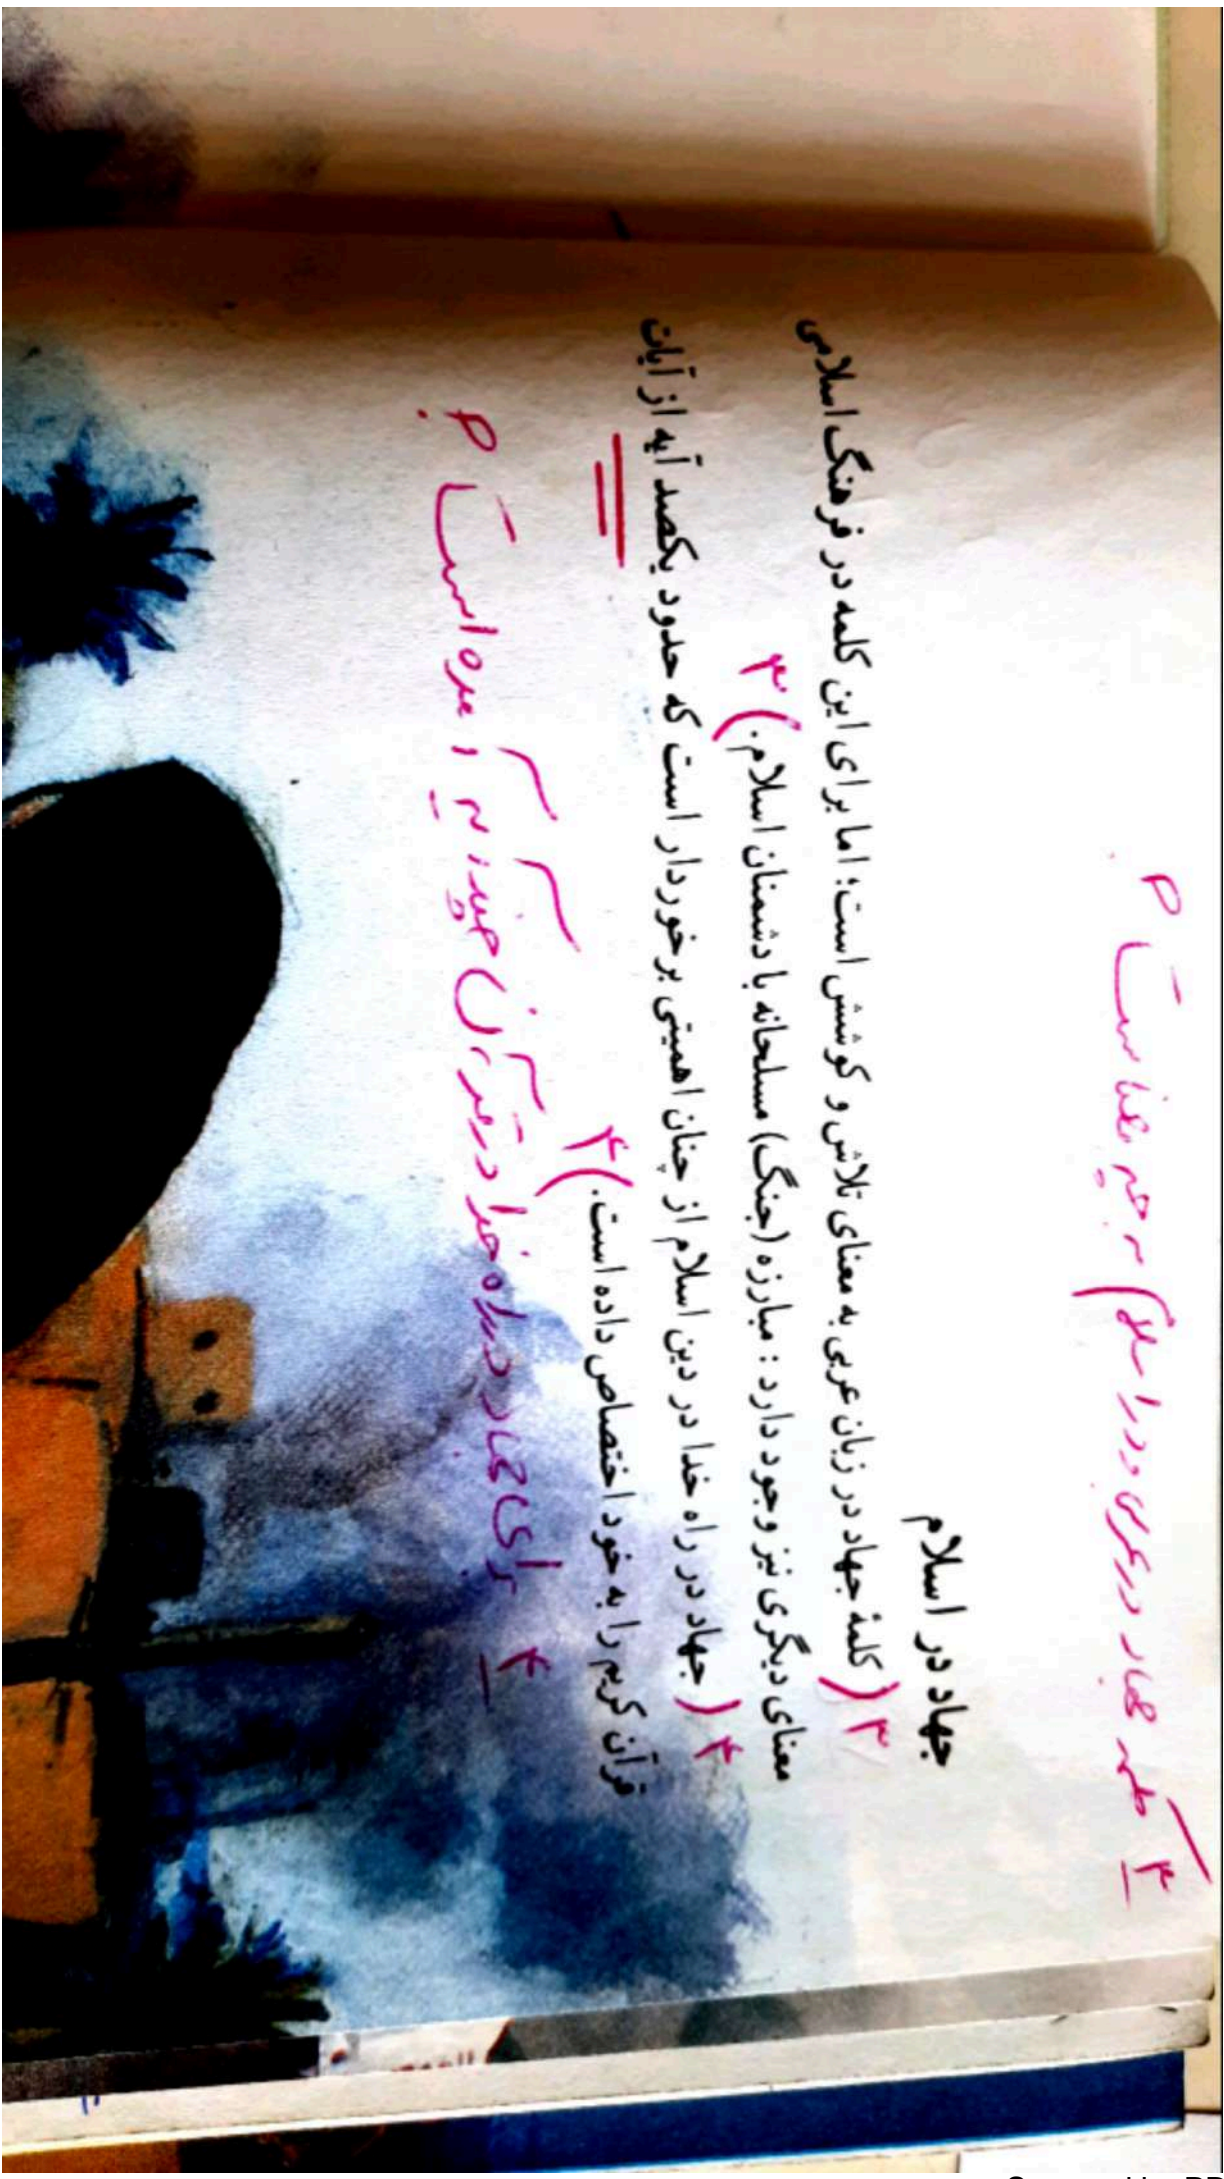 ۳ کلمه جهاد در عربی و در اسلام به چه معناست؟
جهاد در اسلام
۳ (کلمهٔ جهاد در زبان عربی به معنای تلاش و کوشش است؛ اما برای این کلمه در فرهنگ اسلامی
معنای دیگری نیز وجود دارد: مبارزه (جنگ) مسلحانه با دشمنان اسلام.) ۳
۴ (جهاد در راه خدا در دین اسلام از چنان اهمیتی برخوردار است که حدود یکصد آیه از آیات
قرآن کریم را به خود اختصاص داده است.) ۴
۴ برای جهاد در راه خدا در قرآن چند آیه آمده است؟